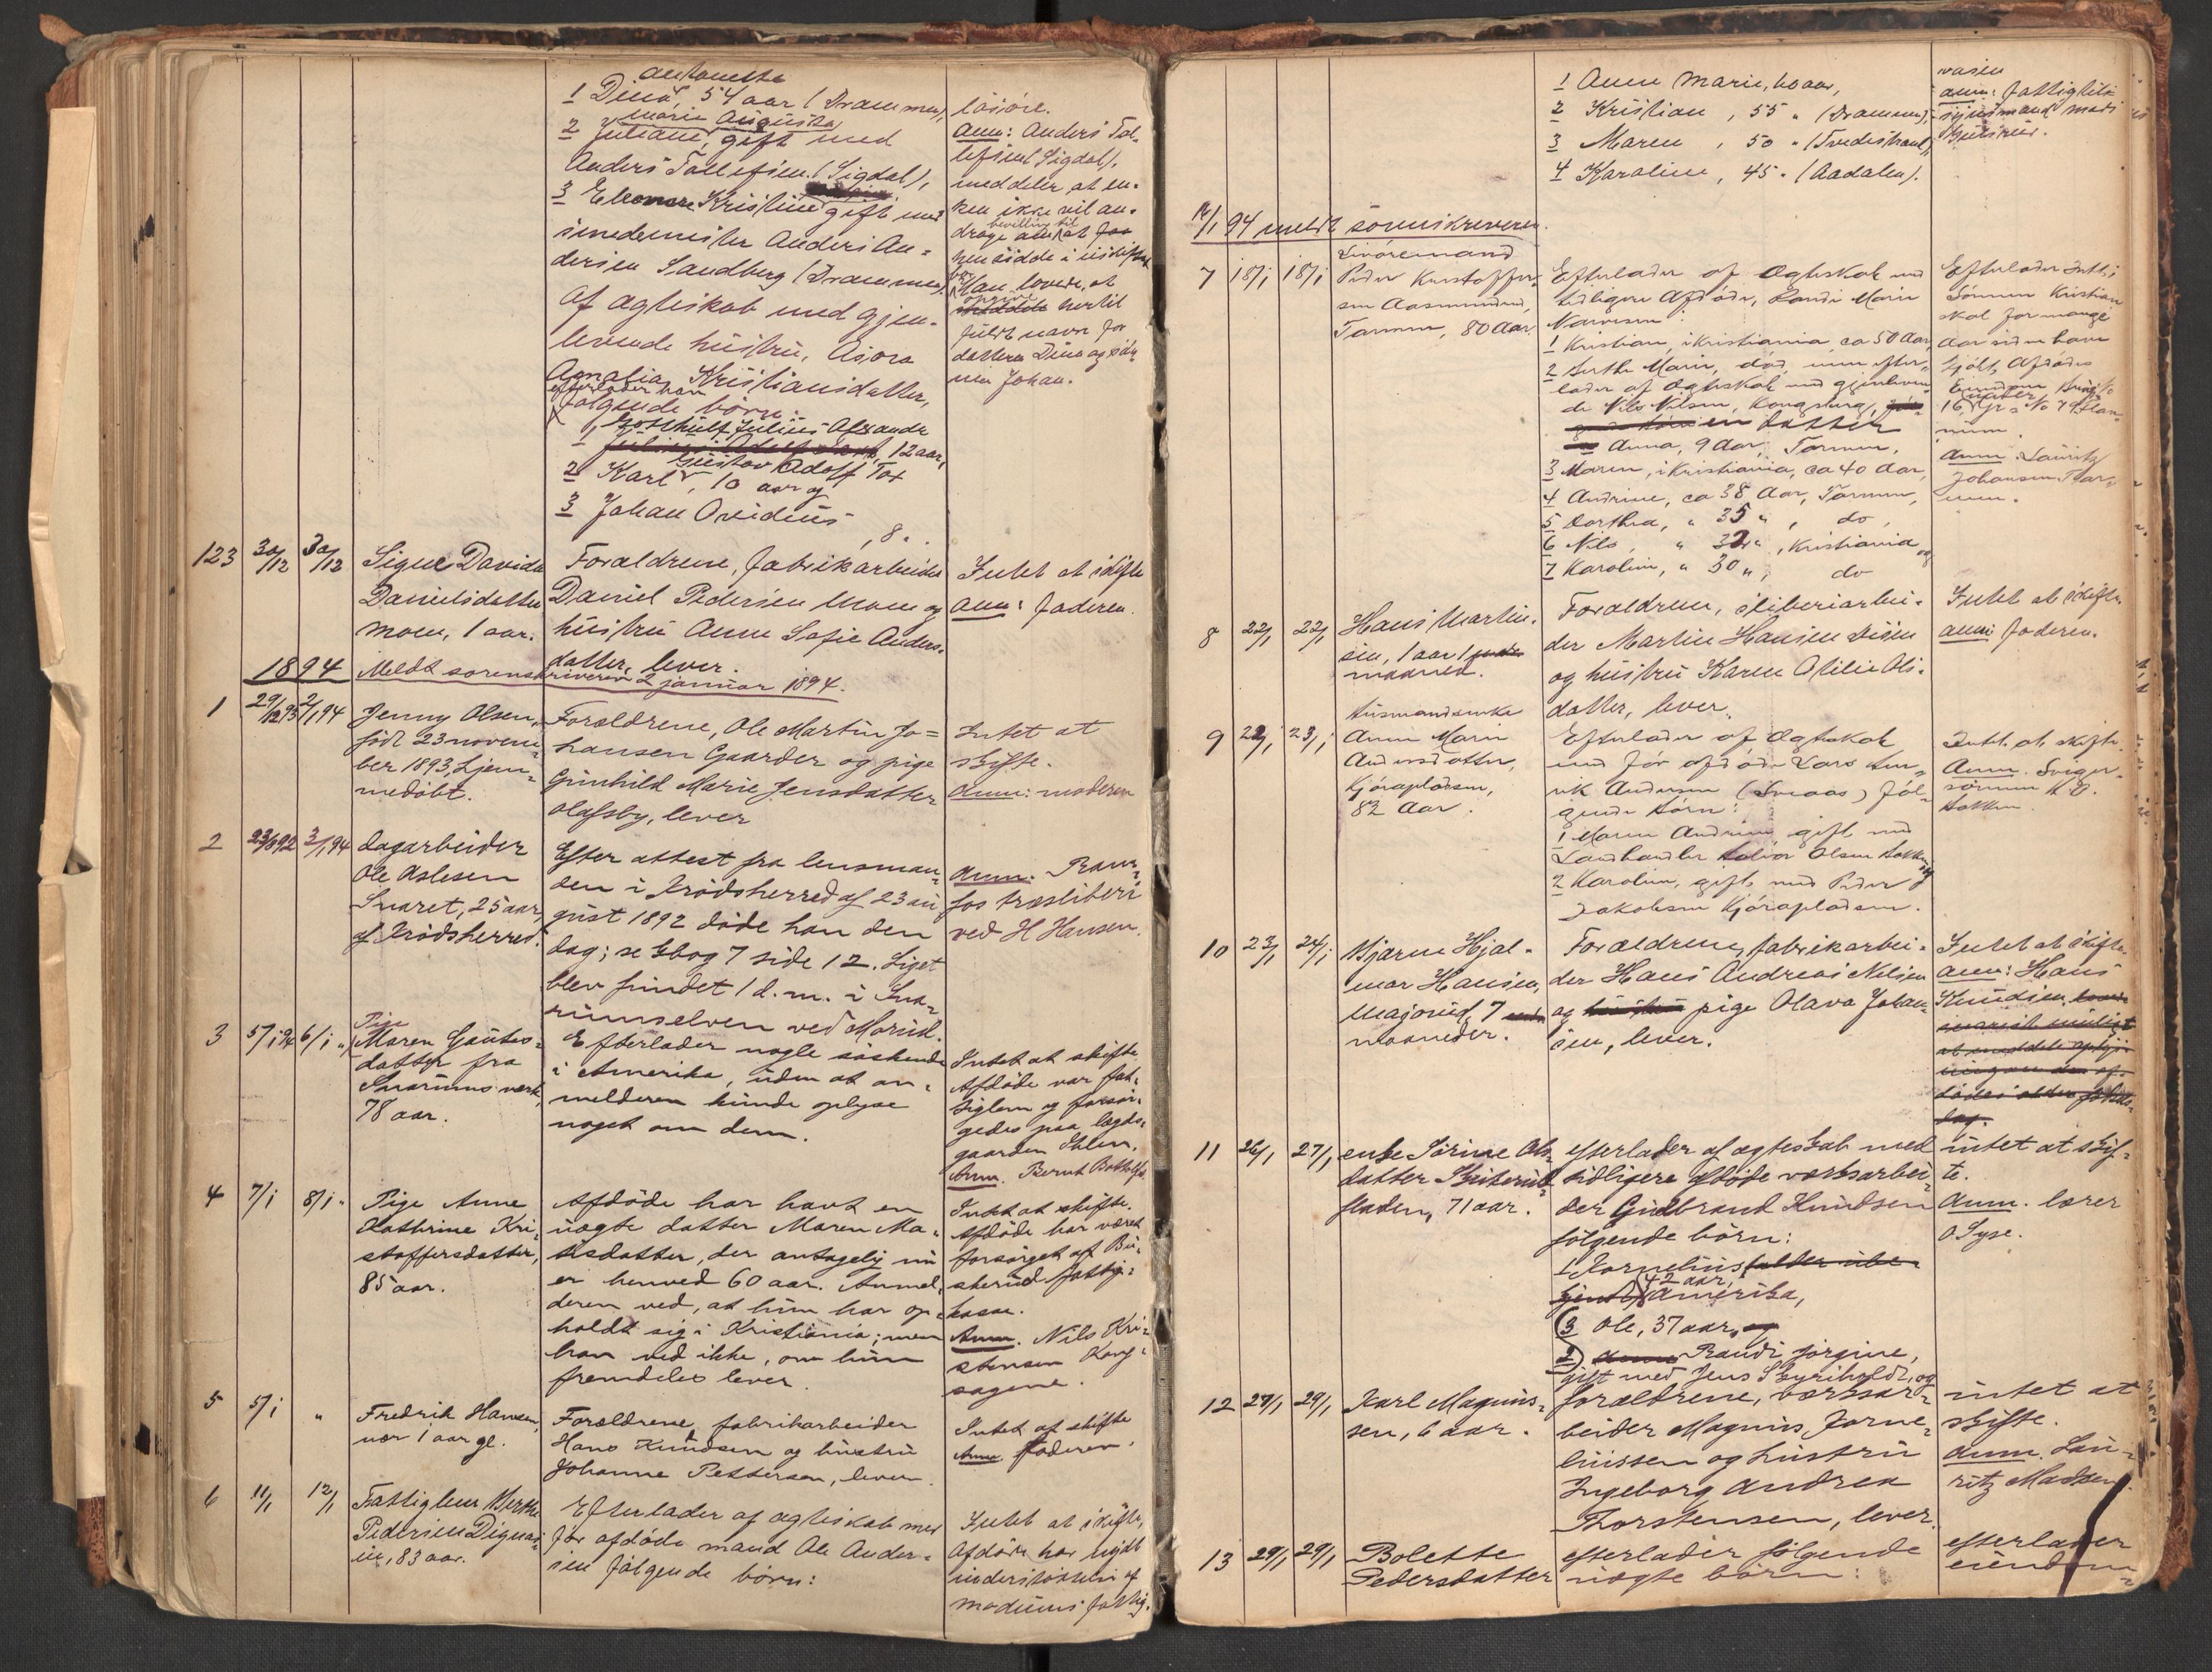 Antonette
1 Dina, 54 aar (Drammen),
Marie Augusta
2 Juliane, gift med
Anders Tollefsen (Sigdal),
3 Eleonore Kristine gift med
smedemester Anders An-
dersen Sandberg (Drammen).
Af ægteskab med gjen-
levende hustru, Asora
Amalia Kristiansdatter,
efterlader han
følgende børn:
Gotthulf Julius Alexander
1 12 aar,
Gustav Adolf
2 Karl, 10 aar og
3 Johan Ovidius
, 8 "
løsøre.
Anm: Anders Tol-
lefsen (Sigdal),
meddeler at en-
ken ikke vil an-
bevilling til
drage om at
hensidde i uskiftet
bo
Han lovede at
opgive
hertil
fuldt navn for
datteren Dina og
Johan.
123 30/12 30/12 Signe Davida
Danielsdatter
Moen, 1 aar.
Forældrene, fabrikarbeider
Daniel Pedersen Moen og
hustru Anne Sofie Anders-
datter, lever.
Intet at skifte
Anm: Faderen.
1894 Meldt sorenskriveren 2 januar 1894.
1 29/12 93 2/1 94 Jenny Olsen,
født 23 novem-
ber 1893, hjem-
medøbt.
Forældrene, Ole Martin Jo-
hansen Gaarder og pige
Gunhild Marie Jensdatter
Olafsby, lever
Intet at
skifte.
Anm: moderen
2 23/8 92 3/1 94 dagarbeider
Ole Aslesen
Snaret, 25 aar,
af Krødsherred.
Efter attest fra lensman-
den i Krødsherred af 23 au
gust 1892 døde han den
dag; se Ebog 7 side 12. Liget
blev fundet 1 d. m. i Sna-
rumselven ved Morud.
Anm. Ram-
fos træsliberi
ved H Hansen.
3 5/1 94 6/1 "
Pige
Maren Gautes-
datter fra
Snarums værk,
78 aar.
Efterlader nogle søskende
i Amerika, uden at an-
melderen kunde oplyse
noget om dem.
Intet at skifte
Afdøde var fat-
tiglem og forsør-
gedes paa lægds-
gaarden Ihlen.
Anm. Bernt
4 7/1 8/1 " Pige Anne
Kathrine Kri-
stoffersdatter,
85 aar.
Afdøde har havt en
uægte datter Maren Ma-
tisdatter, der antagelig nu
er henved 60 aar. Anmel-
deren ved, at hun har op-
holdt sig i Kristiania; men
han ved ikke, om hun
fremdeles lever.
Intet at skifte.
Afdøde har været
forsørget af Bu-
skerud fattig-
kasse.
Anm. Nils Kri-
stensen Kong-
sagene.
5 5/1 " Fredrik Hansen,
vær 1 aar gl.
Forældrene, fabrikarbeider
Hans Knudsen og hustru
Johanne Pettersen, lever.
Intet at skifte
Anm. Faderen.
6 11/1 12/1 Fattiglem Berthe
Pedersen
83 aar.
Efterlader af ægteskab med
før afdøde mand Ole Ander-
sen følgende børn:
Intet at skifte,
Afdøde har nydt
understøttelse af
Modums fattig-
1 Anne Marie, 60 aar,
2 Kristian, 55 " (Drammen),
3 Maren, 50 " (Tvedestrand),
4 Karoline, 45 " (Aadalen).
væsen
Anm: Fattigtil-
synsmand Mads
12/1 94 meldt sorenskriveren.
7 18/1 18/1
Livøremand
Peder Kristoffer-
sen Aasmundrud,
80 Aar.
Efterlader af Ægteskab med
tidligere Afdøde, Randi Marie
1 Kristian, i Kristiania ca 50 Aar,
2 Berthe Marie, død, men efter-
lader af Ægteskab med gjenleven-
de Nils Nilsen, Kongsberg,
en Datter
Anna, 9 Aar,
3 Maren, i Kristiania, ca 40 Aar,
4 Andrine, ca 38 Aar,
5 Dorthea, " 35 " , do,
6 Nils, " 32 " , Kristiania og
7 Karoline, " 30 " , do
Efterlader Intet;
Sønnen Kristian
skal for mange
Aar siden have
kjøbt Afdødes
Eiendom
Anm. Lauritz
Johansen
8 22/1 22/1 Hans Martin-
sen, 1 aar 1
maaned.
Forældrene, sliberiarbei-
der Martin Hansen
og hustru Karen Otilie Ols-
datter, lever.
Intet at skifte.
Anm: Faderen.
9 22/1 23/1
Husmandsenke
Anne Marie
Andersdatter,
Kjørapladsen,
82 Aar.
Efterlader af Ægteskab
med før afdøde Lars Hen-
rik Andersen (Svaas) føl-
gende Børn:
1 Maren Andrine, gift med
Landhandler Halvor Olsen Hokken og
2 Karoline, gift med Peder
Jakobsen Kjøraplassen.
Intet at skifte.
Anm. Sviger-
sønnen H. O.
Hokken.
10 23/1 24/1 Bjarne Hjal-
mar Hansen,
7
maaneder.
Forældrene, fabrikarbei-
der Hans Andreas Nilsen
og pige Olava Johan-
sen, lever.
Intet at skifte
Anm: Hans
Knudsen
11 26/1 27/1 enke Sørine Ols-
datter
fladen, 71 aar.
efterlader af ægteskab med
tidligere afdøde værksarbei-
der Gudbrand Knudsen
følgende børn:
1 Kornelius
42 aar,
Amerika,
3 Ole, 37 aar,
2 Randi Jørgine,
gift med Jens Skyriholdt, og
intet at skif-
te.
Anm. lærer
O Syse.
12 27/1 29/1 Karl Magnus-
sen, 6 aar.
forældrene, værksar-
beider Magnus Jorne-
liussen og hustru
Ingeborg Andrea
Thorstensen, lever.
intet at
skifte.
Anm. Lau-
ritz Madsen.
13 29/1 29/1 Bolette
Pedersdatter
efterlader følgende
uægte børn:
efterlader
eiendom-